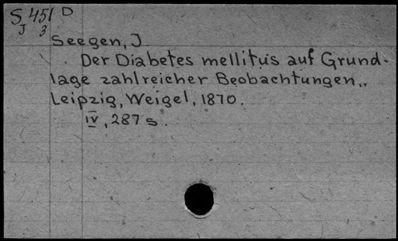 S 451 D
J 3
Seegen, J
Der Diabetes mellitus auf Grund-
lage zahlreicher Beobachtungen..
Leipzig, Weigel, 1870.
IV, 287 s.